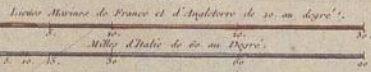 Lieues Marines de France et d'Angleterre de 20. au degré.
5. 10. 20. 30
Milles d'Italie de 60. au Degré.
5. 10. 15. 30 60 90